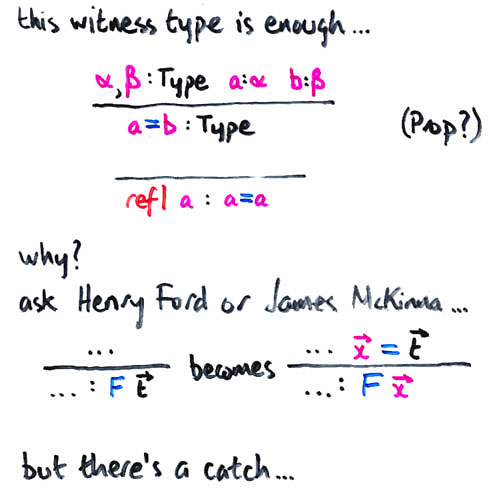 this witness type is enough...
α,β:Type a:α b:β
a=b : Type (Prop?)
refl a : a=a
why?
ask Henry Ford or James McKinna...
... becomes ... x⃗ = t⃗
... : F t⃗ ... : F x⃗
but there's a catch...